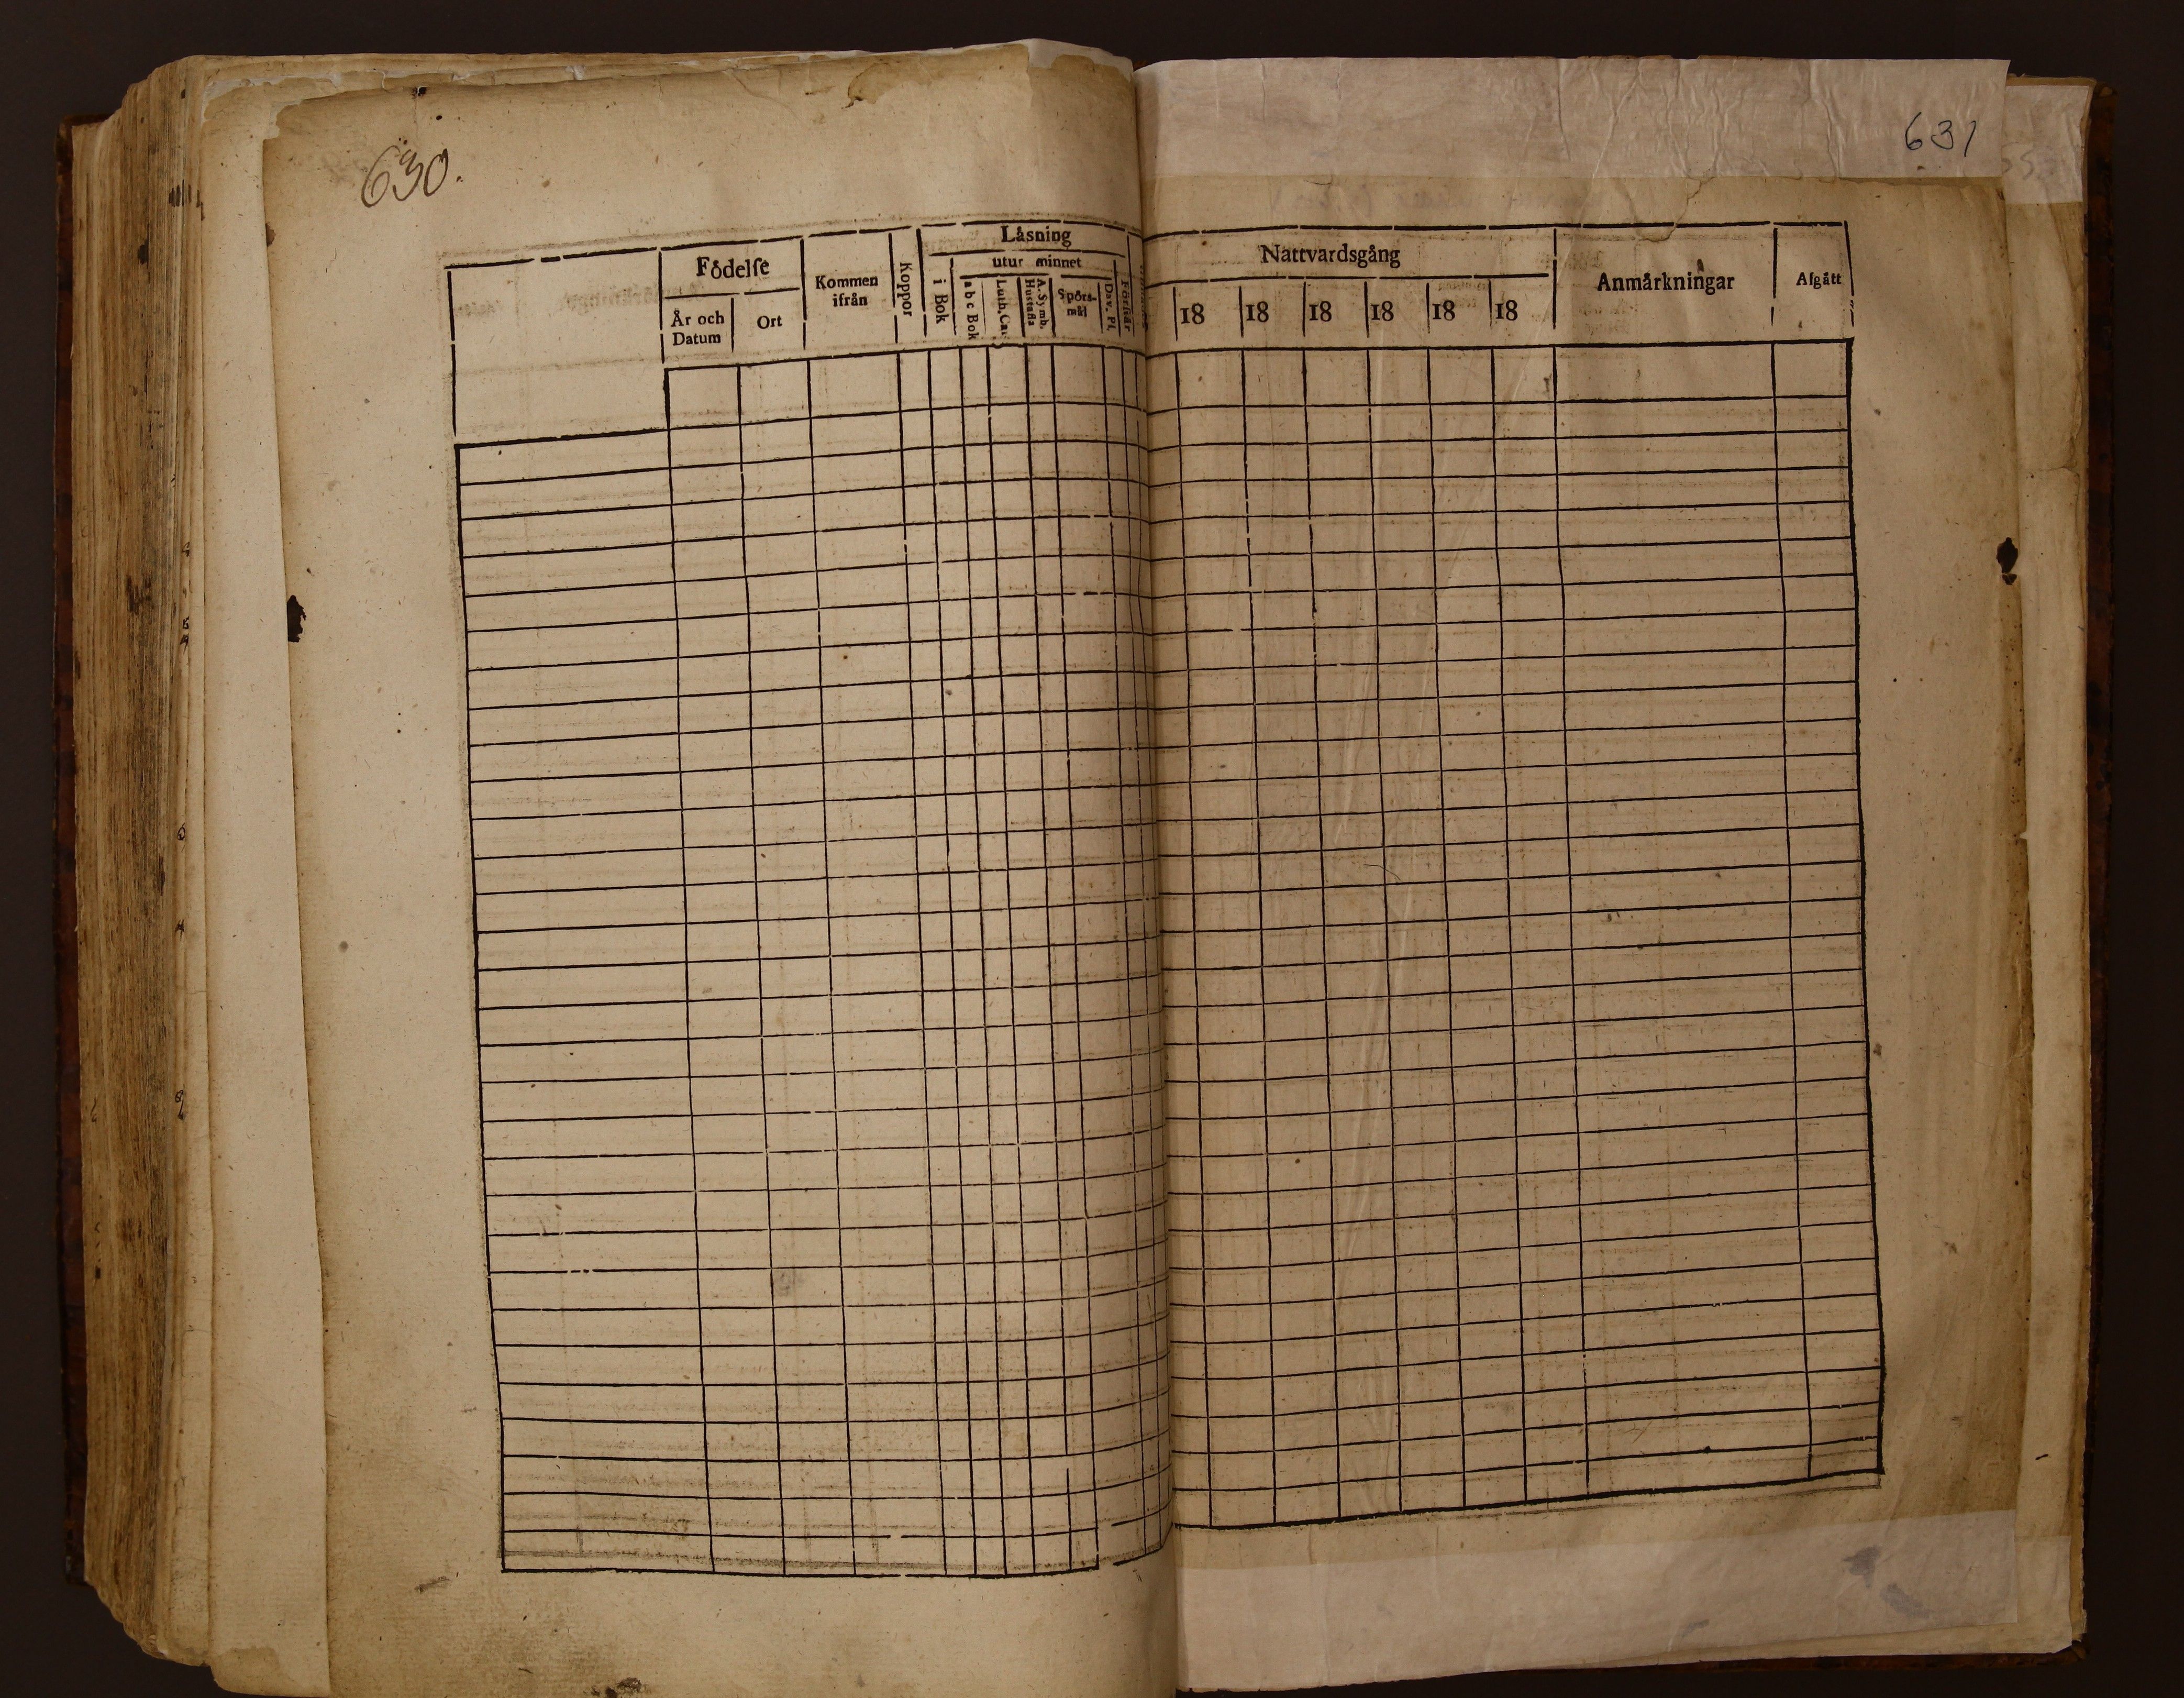 630.
Födelse
År och Datum
Ort
Kommen ifrån
Koppor
Läsning
i Bok
utur minnet
a b c Bok
Luth. Ca
A. Symb. Hustafla
Spörs-mål
Dav. Ps.
Förstår
631
Nattvardsgång
18 18 18 18 18 18
Anmärkningar
Afgått